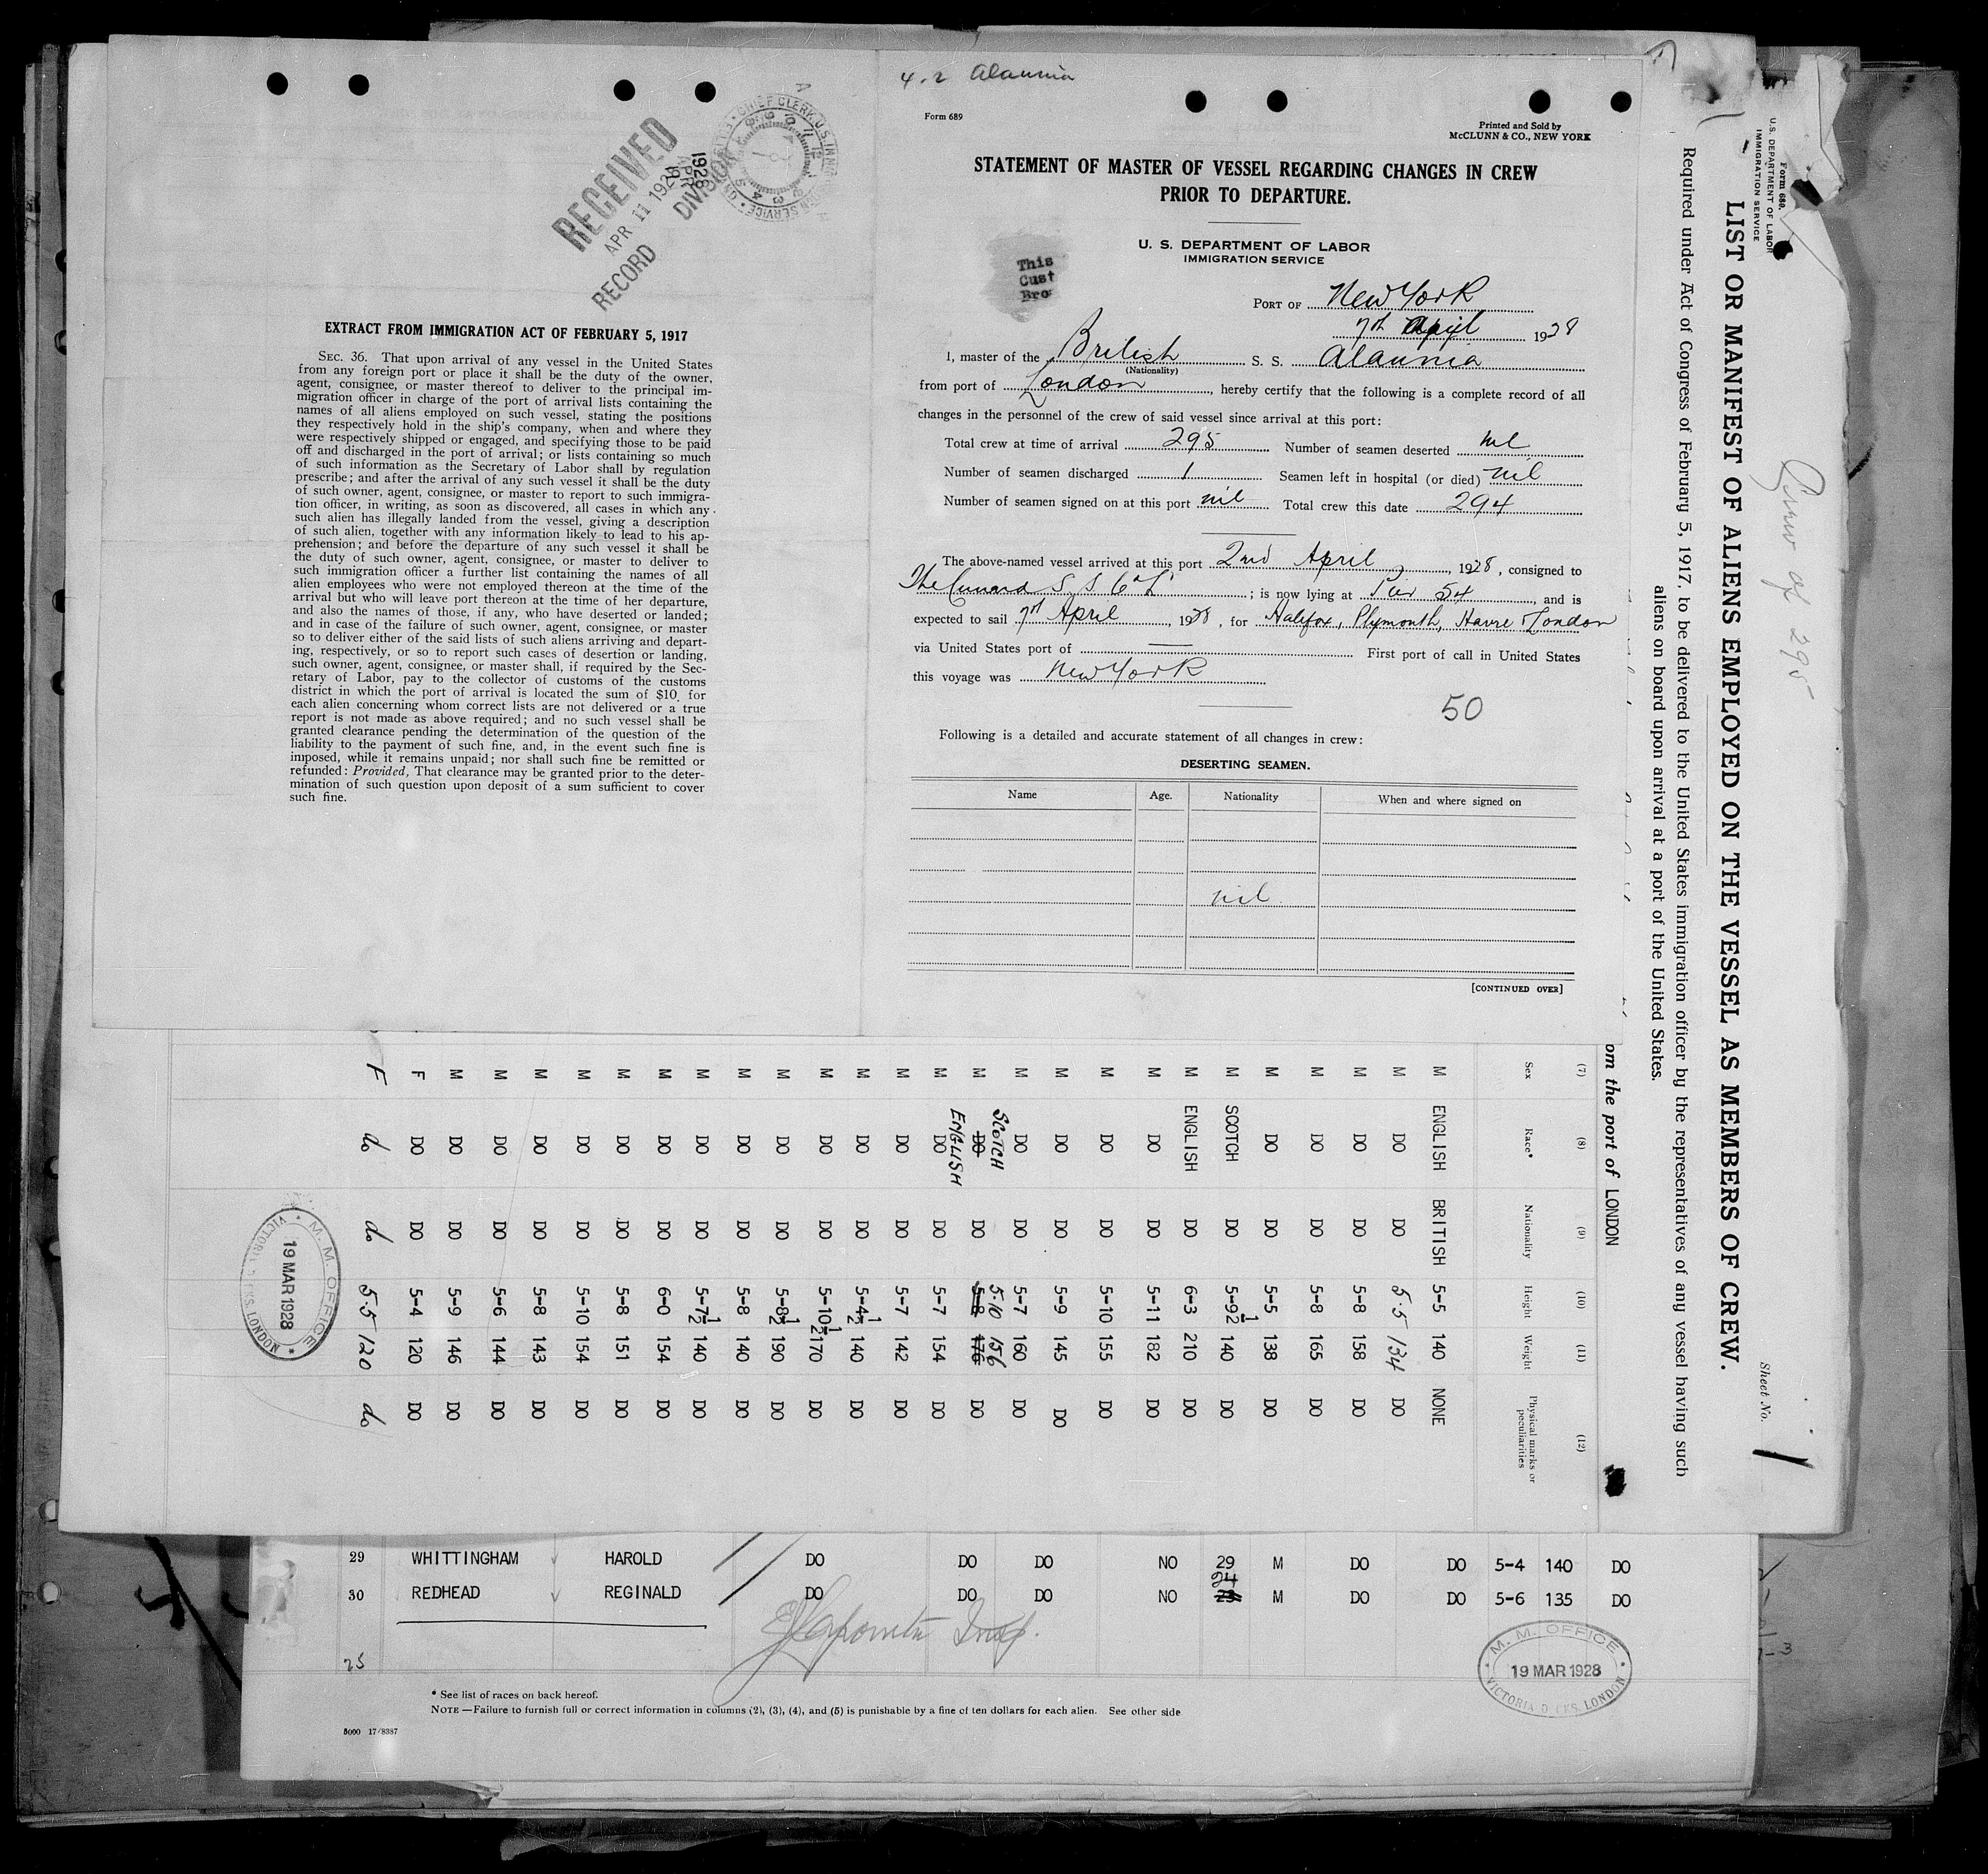 4.2 Alaunia
Form 689
Printed and Sold by
McCLUNN & CO., NEW YORK
STATEMENT OF MASTER OF VESSEL REGARDING CHANGES IN CREW
PRIOR TO DEPARTURE.
U. S. DEPARTMENT OF LABOR
IMMIGRATION SERVICE
This
Cust
Bro
PORT OF New York
7th April 1928
I, master of the British S. S. Alaunia
(Nationality)
from port of London, hereby certify that the following is a complete record of all
changes in the personnel of the crew of said vessel since arrival at this port:
Total crew at time of arrival 295; Number of seamen deserted nil
Number of seamen discharged 1 Seamen left in hospital (or died) nil
Number of seamen signed on at this port nil Total crew this date 294
The above-named vessel arrived at this port 2nd April, 1928, consigned to
The Cunard S S Co Ld; is now lying at Pier 54, and is
expected to sail 7th April, 1928, for Halifax, Plymouth, Havre London
via United States port of —— First port of call in United States
this voyage was New York
50
Following is a detailed and accurate statement of all changes in crew:
DESERTING SEAMEN.
Name Age. Nationality When and where signed on
nil
[CONTINUED OVER]
RECEIVED
APR 11 1928
RECORD DIVISION
1928
APR
CHIEF CLERK U.S. IMMIGRATION SERVICE
EXTRACT FROM IMMIGRATION ACT OF FEBRUARY 5, 1917
SEC. 36. That upon arrival of any vessel in the United States
from any foreign port or place it shall be the duty of the owner,
agent, consignee, or master thereof to deliver to the principal im-
migration officer in charge of the port of arrival lists containing the
names of all aliens employed on such vessel, stating the positions
they respectively hold in the ship's company, when and where they
were respectively shipped or engaged, and specifying those to be paid
off and discharged in the port of arrival; or lists containing so much
of such information as the Secretary of Labor shall by regulation
prescribe; and after the arrival of any such vessel it shall be the duty
of such owner, agent, consignee, or master to report to such immigra-
tion officer, in writing, as soon as discovered, all cases in which any
such alien has illegally landed from the vessel, giving a description
of such alien, together with any information likely to lead to his ap-
prehension; and before the departure of any such vessel it shall be
the duty of such owner, agent, consignee, or master to deliver to
such immigration officer a further list containing the names of all
alien employees who were not employed thereon at the time of the
arrival but who will leave port thereon at the time of her departure,
and also the names of those, if any, who have deserted or landed;
and in case of the failure of such owner, agent, consignee, or master
so to deliver either of the said lists of such aliens arriving and depart-
ing, respectively, or so to report such cases of desertion or landing,
such owner, agent, consignee, or master shall, if required by the Sec-
retary of Labor, pay to the collector of customs of the customs
district in which the port of arrival is located the sum of $10 for
each alien concerning whom correct lists are not delivered or a true
report is not made as above required; and no such vessel shall be
granted clearance pending the determination of the question of the
liability to the payment of such fine, and, in the event such fine is
imposed, while it remains unpaid; nor shall such fine be remitted or
refunded: Provided, That clearance may be granted prior to the deter-
mination of such question upon deposit of a sum sufficient to cover
such fine.
Form 680.
U.S. DEPARTMENT OF LABOR
IMMIGRATION SERVICE
Sheet No. 1
of 295
LIST OR MANIFEST OF ALIENS EMPLOYED ON THE VESSEL AS MEMBERS OF CREW.
Required under Act of Congress of February 5, 1917, to be delivered to the United States immigration officer by the representatives of any vessel having such
aliens on board upon arrival at a port of the United States.
om the port of LONDON
(7) (8) (9) (10) (11) (12)
Sex Race* Nationality Height Weight Physical marks or peculiarities
M ENGLISH BRITISH 5-5 140 NONE
M DO DO 5.5 134 DO
M DO DO 5-8 158 DO
M DO DO 5-8 165 DO
M DO DO 5-5 138 DO
M SCOTCH DO 5-9½ 140 DO
M ENGLISH DO 6-3 210 DO
M DO DO 5-11 182 DO
M DO DO 5-10 155 DO
M DO DO 5-9 145 DO
M DO DO 5-7 160 DO
SCOTCH 5.10 156
M DO DO 5-8 176 DO
M DO DO 5-7 154 DO
ENGLISH
M DO DO 5-7 142 DO
M DO DO 5-4½ 140 DO
M DO DO 5-10½ 170 DO
M DO DO 5-8½ 190 DO
M DO DO 5-8 140 DO
M DO DO 5-7½ 140 DO
M DO DO 6-0 154 DO
M DO DO 5-8 151 DO
M DO DO 5-10 154 DO
M DO DO 5-8 143 DO
M DO DO 5-6 144 DO
M DO DO 5-9 146 DO
F DO DO 5-4 120 DO
F do do 5.5 120 do
M. M. OFFICE
19 MAR 1928
VICTORIA DOCKS. LONDON
29 WHITTINGHAM HAROLD DO DO DO NO 29 M DO DO 5-4 140 DO
30 REDHEAD REGINALD DO DO DO NO 24 23 M DO DO 5-6 135 DO
Insp.
25
M. M. OFFICE
19 MAR 1928
VICTORIA DOCKS. LONDON
* See list of races on back hereof.
NOTE—Failure to furnish full or correct information in columns (2), (3), (4), and (5) is punishable by a fine of ten dollars for each alien. See other side
5000 17/8387